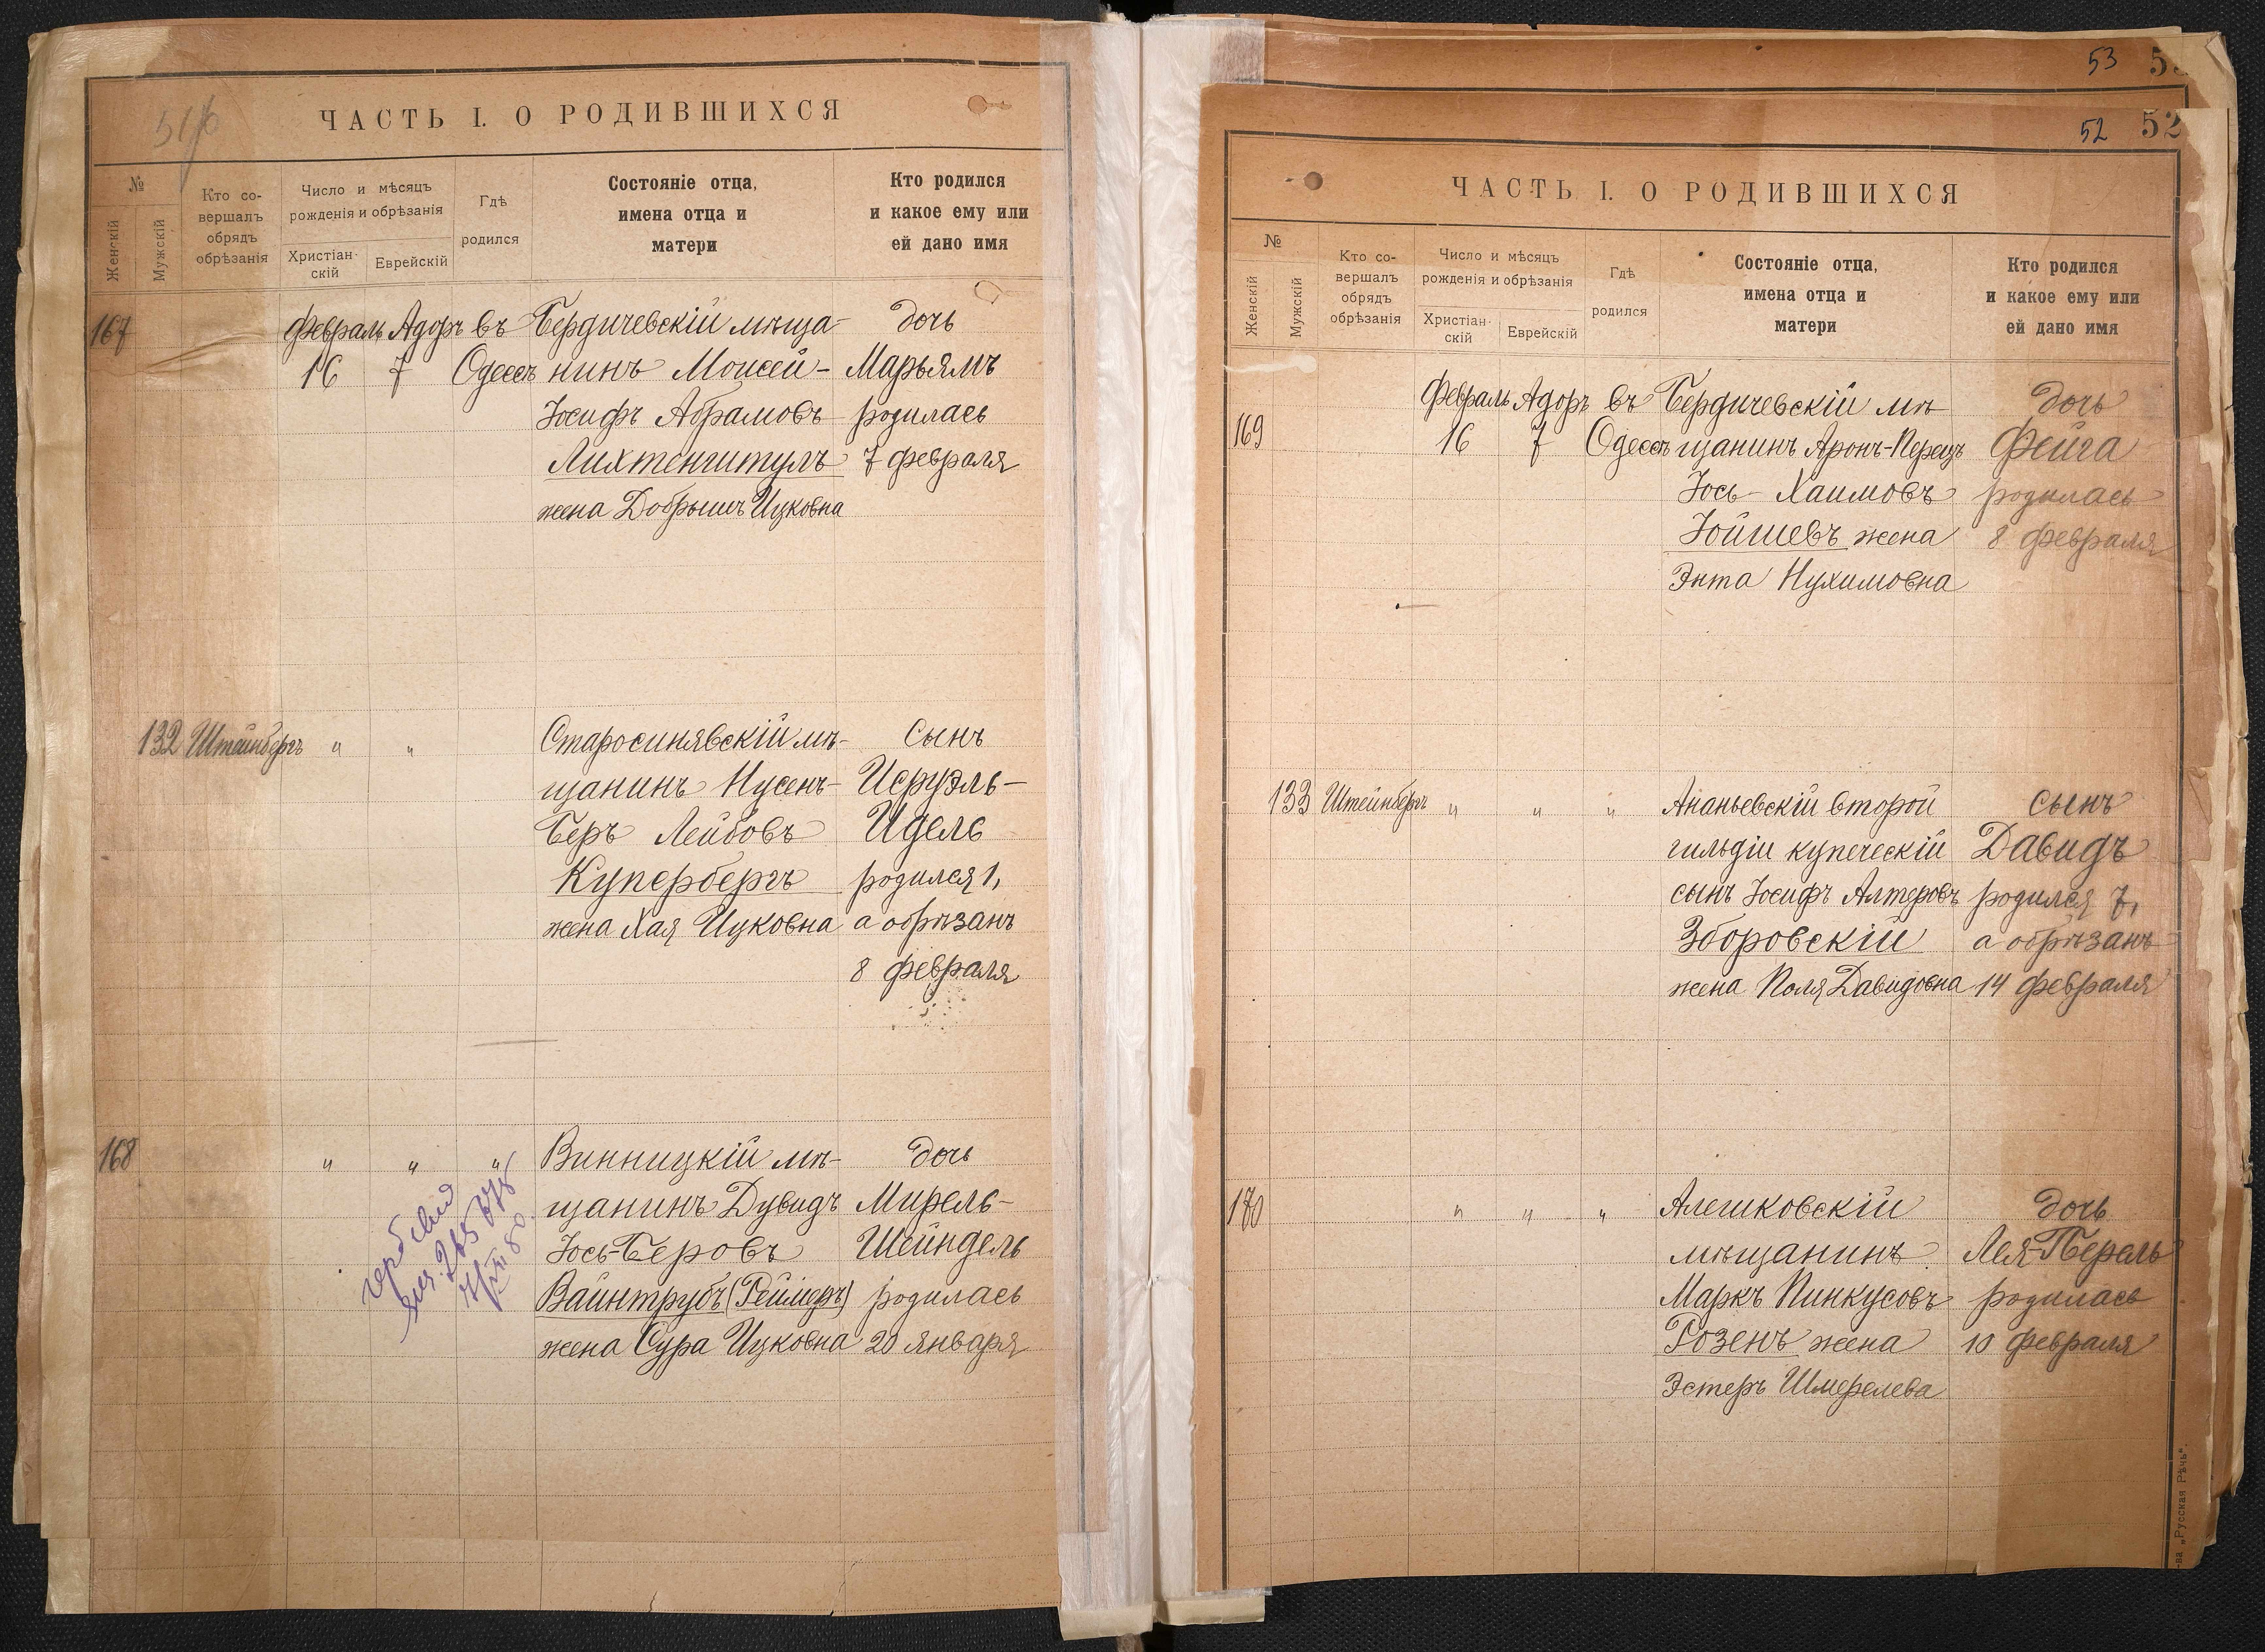 ЧАСТЬ I. О РОДИВШИХСЯ
№
Женскій
Мужскій
Кто со-
вершалъ
обрядъ
обрѣзанія
Число и мѣсяцъ
рожденія и обрѣзанія
Христіан-
скій
Еврейскій
Гдѣ
родился
Состояніе отца,
имена отца и
матери
Кто родился
и какое ему или
ей дано имя
167 Февраль Адоръ въ Бердичевскій мѣща- дочь
16 7 Одессѣ нинъ Моисей- Марьямъ
Іосифъ Абрамовъ родилась
Лихтенштулъ 7 февраля
жена Добрышъ Ицковна
132 Штейнбергъ " " Старосинявскій мѣ- сынъ
щанинъ Нусенъ- Исруэль-
Беръ Лейбовъ Идель
Купербергъ родился 1,
жена Хая Ицковна а обрѣзанъ
8 февраля
168 " " " Винницкій мѣ- дочь
щанинъ Дувидъ Мирель-
Іось-Беровъ Шейндель
Вайнтрубъ (Реймеръ) родилась
жена Сура Ицковна 20 января
53
52 52
ЧАСТЬ I. О РОДИВШИХСЯ
№
Женскій
Мужскій
Кто со-
вершалъ
обрядъ
обрѣзанія
Число и мѣсяцъ
рожденія и обрѣзанія
Христіан-
скій
Еврейскій
Гдѣ
родился
Состояніе отца,
имена отца и
матери
Кто родился
и какое ему или
ей дано имя
Февраль Адоръ въ Бердичевскій мѣ- дочь
169 16 7 Одессѣ щанинъ Аронъ-Перецъ Фейга
Іось-Хаимовъ родилась
Іойшевъ жена 8 февраля
Энта Нухимовна
133 Штейнбергъ " " " Ананьевскій второй сынъ
гильдіи купеческій Давидъ
сынъ Іосифъ Алтеровъ родился 7,
Зборовскій а обрѣзанъ
жена Поля Давидовна 14 февраля
170 " " " Алешковскій дочь
мѣщанинъ Лея-Перель
Маркъ Пинкусовъ родилась
Розенъ жена 10 февраля
Эстеръ Шмерелева
-ва „Русская Рѣчь".